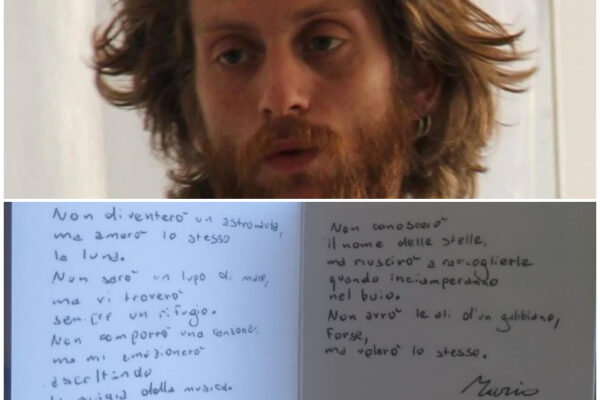 Non diventerò un astronauta,
ma amerò lo stesso
la luna.
Non sarò un lupo di mare,
ma vi troverò
sempre un rifugio.
Non comporrò una canzone,
ma mi emozionerò
ascoltando
la magia della musica.
Non conoscerò
il nome delle stelle,
ma riuscirò a raccoglierle
quando inciamperanno
nel buio.
Non avrò le ali d'un gabbiano,
Forse,
ma volerò lo stesso.
Mario